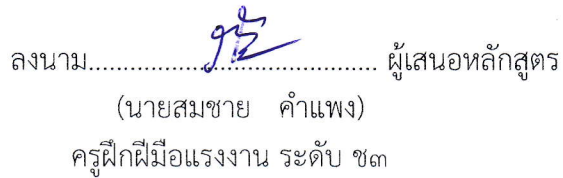 ลงนาม........................................ ผู้เสนอหลักสูตร
(นายสมชาย คำแพง)
ครูฝึกฝีมือแรงงาน ระดับ ช๓